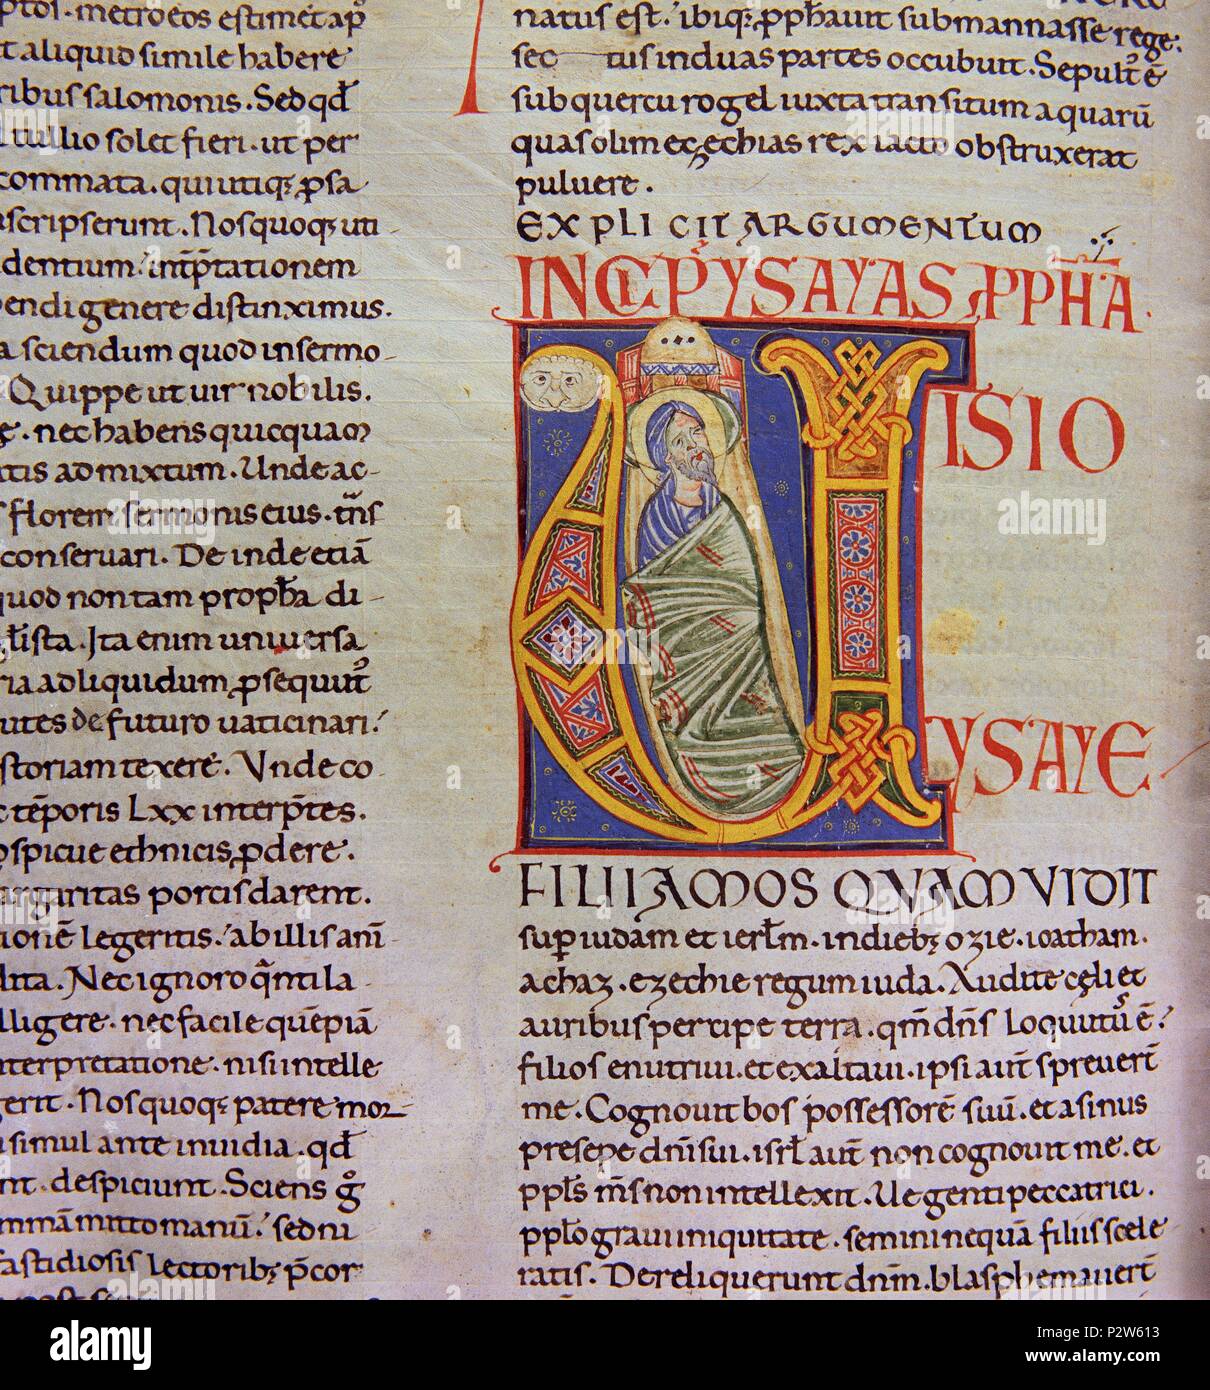 metroeos estimet ap̄
aliquid simile habere
ribus salomonis. Sed qđ
tullio solet fieri. ut per
commata. qui utiq; ꝑsa
scripserunt. Nos quoq; uti
dentium. int̄p̄tationem
pendi genere distinximus.
a sciendum quod in sermo
Quippe ut uir nobilis.
nec habens quicquam
tis admixtum. Unde ac
florem sermonis eius. tn̄s
conseruari. De inde etiā
quod non tam propħa di
Ita enim uniuersa
ria ad liquidum ꝑsequiut̄
de futuro uaticinari.
storiam texere. Vnde co
tēporis Lxx interp̄tes.
spicue ethnicis ꝓdere.
argaritas porcis darent.
tionē legeritis. ab illis
dita. Nec ignoro q̄nti la
lligere. nec facile quēpiā
nterpretatione. nisi intelle
gerit. Nos quoq; patere mor
simul ante inuidia. qđ
nt. despiciunt. Sciens ḡ
mmā mitto manū. sed ni
fastidiosis lectorib; p̄cor
natus est. ibiq; ꝓphauit sub mannasse rege.
sec tus in duas partes occubuit. Sepult̄ ē
sub quercu rogel iuxta transitum aquarū
quas olim ezechias rex iacto obstruxerat
puluere.
EXPLICIT ARGUMENTUM
INCIP YSAYAS PPHA
UISIO
YSAYE
FILII AMOS QUAM VIDIT
sup iudam et ierłm. in dieb; ozie. ioatham.
achaz. ezechie regum iuda. Audite cęli et
auribus percipe terra. qm̄ dn̄s locutus ē.
filios enutriui. et exaltaui. ipsi aut̄ spreuert̄
me. Cognouit bos possessorē suū. et asinus
presepe dn̄i sui. isrł aut̄ non cognouit me. et
ppłs m̄s non intellexit. Ue genti peccatrici.
ppło graui iniquitate. semini nequā filiis scele
ratis. Dereliquerunt dn̄m. blasphemauert̄
alamy stock photo
alamy
Image ID: P2W613
www.alamy.com